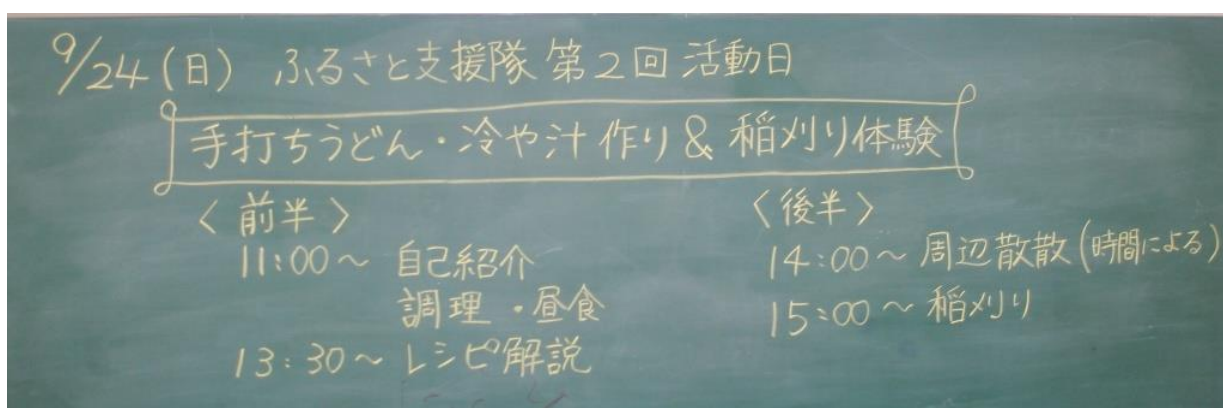 9/24(日) ふるさと支援隊 第2回 活動日
手打ちうどん・冷や汁作り&稲刈り体験
〈前半〉
11:00〜 自己紹介
調理・昼食
13:30〜 レシピ解説
〈後半〉
14:00〜 周辺散散(時間による)
15:00〜 稲刈り